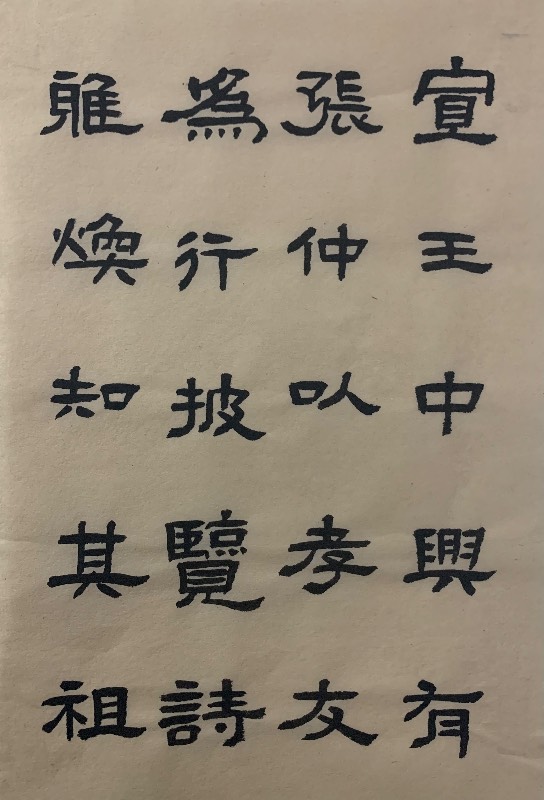 宣王中興有
張仲㕥孝友
爲行披覽詩
雅煥知其祖